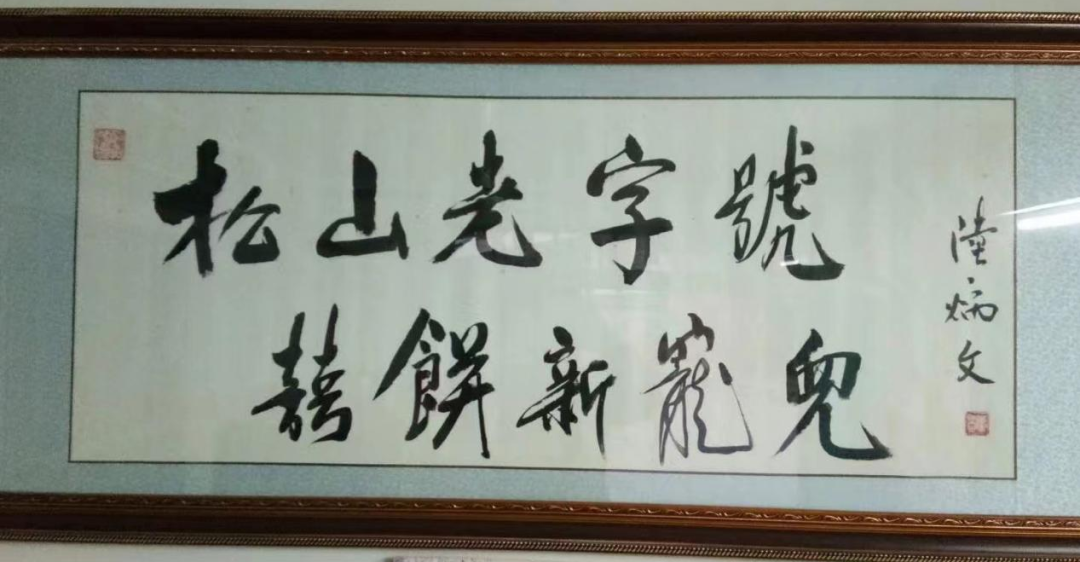 松山老字號
囍餅新龍兒
陸炳文